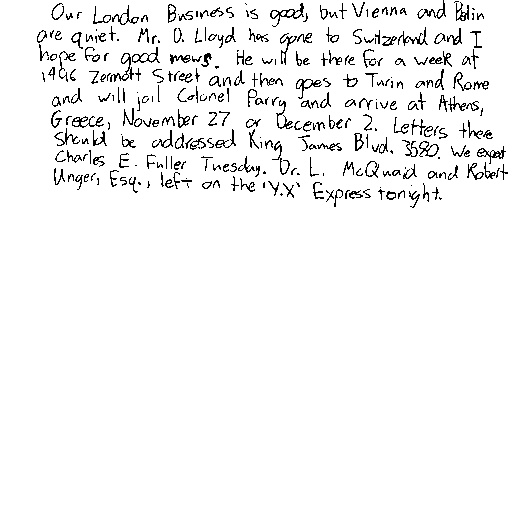 Our London Business is good, but Vienna and Belin
are quiet. Mr. D. Lloyd has gone to Switzerland and I
hope for good news. He will be there for a week at
1496 Zermott Street and then goes to Turin and Rome
and will joil Colonel Parry and arrive at Athens,
Greece, November 27 or December 2. Letters there
should be addressed King James Blvd. 3580. We expect
Charles E. Fuller Tuesday. Dr. L. McQuaid and Robert
Unger, Esq., left on the 'Y.X' Express tonight.